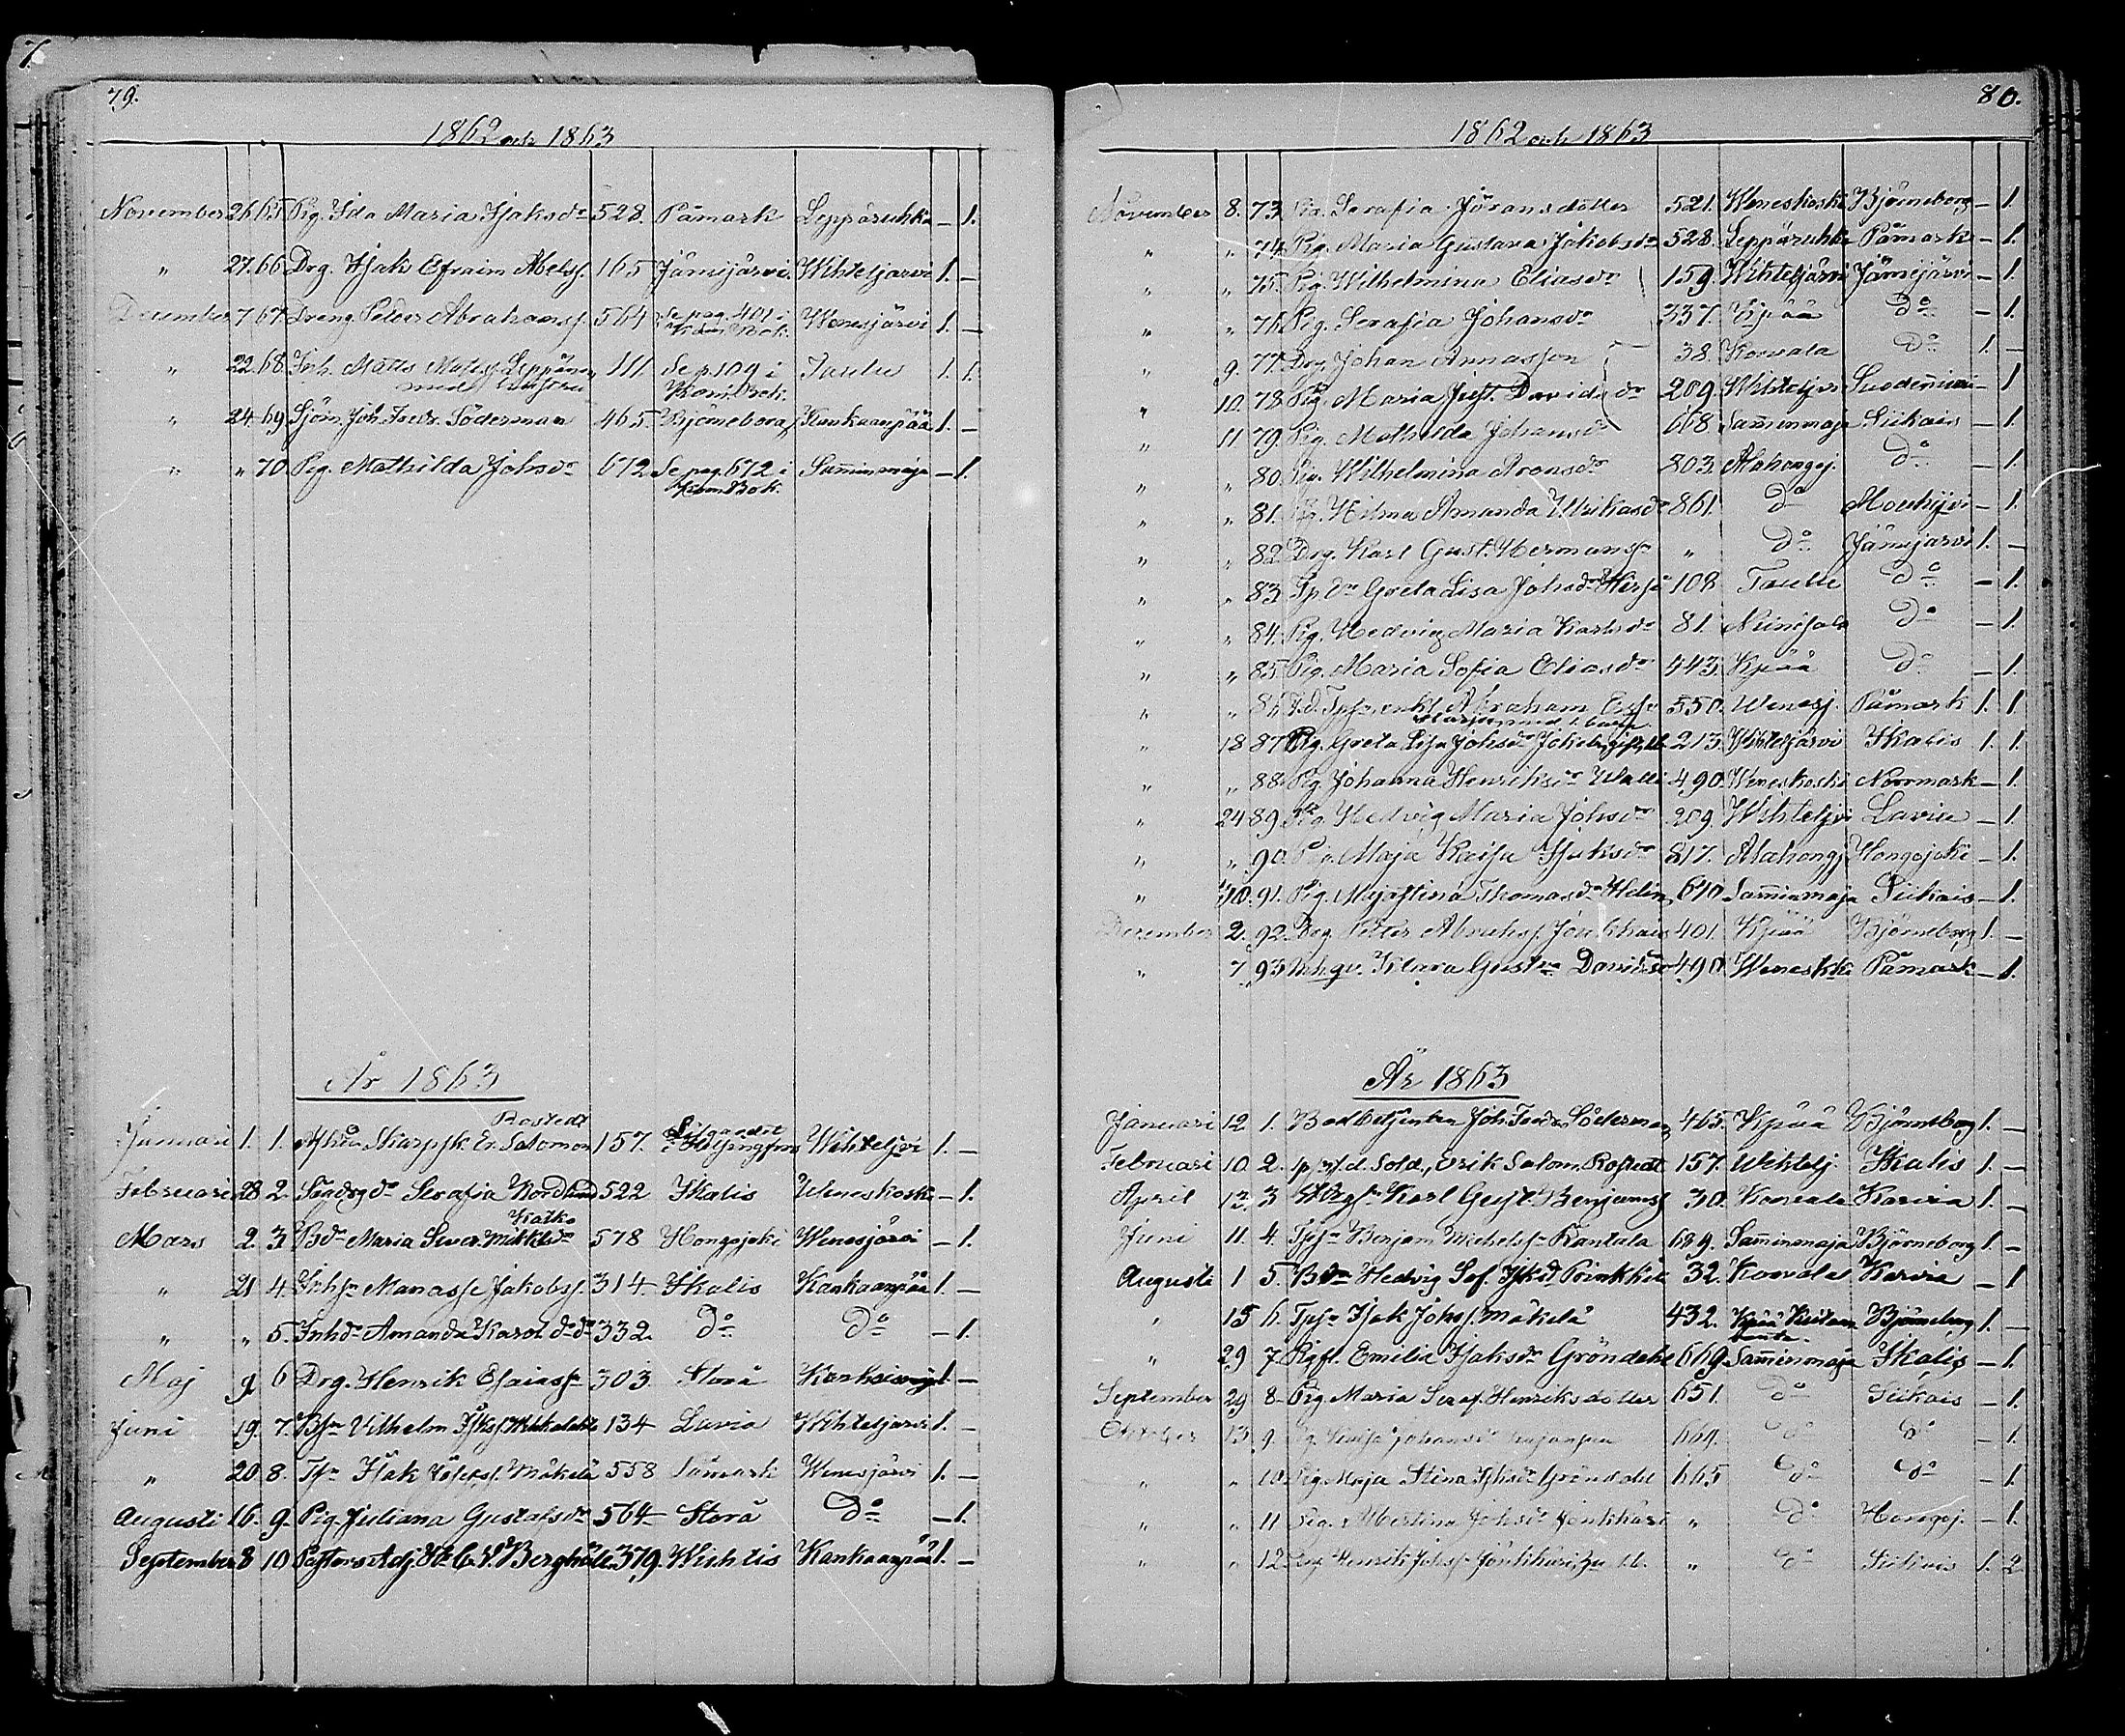 79.
1862 och 1863
November 26 65 Pig. Ida Maria Isaksdr 528. Påmark Leppäruhka — 1.
" 27. 66 Drg. Isak Efraim Abelss. 165 Jämijärvi Wihteljärvi 1. —
December 7 67 Dräng Peter Abrahamss. 564 Se pag. 401 i Wenesjärvi 1. —
Kom. Bok.
" 22. 68. Inh. Matts Matss. Leppänen 111. Se p 109 i Taulu 1. 1.
med hustru Kom. Bok.
" 24. 69 Sjöm. Joh. Fredr. Söderman 465. Björneborg Kankaanpää 1. —
" " 70. Pig. Mathilda Johsdr 672 Se pag. 672 i Samminmaja — 1.
Kom. Bok.
År 1863
Rostedt
Januari 1. 1. Skarpsk. Er. Salomon 157. Helsingfors Wihteljvi 1. —
Februari 28 2. Serafia Nordlund 522 Ikalis Weneskoski — 1.
Katko
Mars 2. 3. Bdr Maria Sever. Mikkelsdr 578 Hongojoki Wenesjärvi — 1.
" 21 4. Inhsn Manasse Jakobss. 314 Ikalis Kankaanpää 1. —
" " 5. Inhdr Amanda Karol. do do 332. do do — 1.
Maj 9 6 Drg. Henrik Esaiass. 303. Storå 1. —
Juni 19. 7. Bsn Vilhelm 134 Lavia Wihteljärvi 1. —
" 20. 8. Tsn Isak Josefss. Mäkelä 558 Påmark Wenesjärvi 1. —
Augusti 16. 9. Pig. Juliana Gustafsdr 564 Storå do — 1.
September 8 10 Pastors Adj. Berghäll 379. Wichtis Kankaanpää 1. —
80.
1862 och 1863
November 8. 73. Pig. Serafia Göransdotter 521. Weneskoski Björneborg — 1.
" " 74. Pig. Maria Gustava Jakobsdr 528. Leppäruhka Påmark — 1.
" " 75. Pig. Wilhelmina Eliasdr 159. Wihteljärvi Jämijärvi — 1.
" " 76. Pig. Serafia Johansdr 337. Kpää do — 1.
" 9. 77. Drg. Johan Annasson 38. Korvala do 1. —
" 10. 78. Pig. Maria Just. Davidsdr 209. Wihteljvi Suodenniemi — 1
" 11 79. Pig. Mathilda Johansdr 668 Samminmaja Siikais — 1.
" " 80. Pig. Wilhelmina Aronsdr 803. Alahongoj. do — 1.
" " 81. Pig. Hilma Amanda Ulrikasdr 861. do Mouhijvi — 1.
" " 82 Drg. Karl Gust. Hermanss. " do Jämijärvi 1. —
" " 83 Tpdr Greta Lisa Johsdr 108 Taulu do — 1.
" " 84. Pig. Hedvig Maria Karlsdr 81. Niinisalo do — 1.
" " 85. Pig. Maria Sofia Eliasdr 443. Kpää do — 1.
" " 86 Abraham 550. Wenesj. Påmark 1. 1.
" 18 87 Pig. Greta Lisa Johsdr 213. Wihteljärvi Ikalis 1. 1.
" " 88. Pig. Johanna Henriksdr 490. Weneskoski Norrmark — 1.
" 24 89 Pig. Hedvig Maria Johsdr 209. Wihteljvi Lavia — 1.
" " 90. Pig. Maja Kaisa Isaksdr 817. Alahongoj Hongojoki — 1.
" 30. 91. Pig. Maja Stina Thomasdr Helin 640 Samminmaja Siikais — 1.
December 2. 92. Drg. Petter Abrahss. 401. Kpää Björneborg 1. —
" 7. 93 Klara Gustva Davidsdr 490. Weneskki Påmark — 1.
År 1863
Januari 12 1. Badbetjenten Joh. Fredr. Söderman 465. Kpää Björneborg 1. —
Februari 10. 2. Sold. Erik Salom. Rostedt 157. Wihtelj. Ikalis 1. —
April 13. 3 Karl Gust. Benjamss. 30. Korvala Karvia 1. —
Juni 11. 4. Tpsn Benjam. Michelss. Rantala 699. Samminmaja Björneborg 1. —
Augusti 1 5. Bdr Hedvig Sof. Isksdr 32. Korvala Karvia — 1
" 15 6. Tpsn Isak Johss. Mäkelä 432. Kpää Björneborg 1. —
" 29 7. Emilia Isaksdr Gröndahl 669. Samminmaja Ikalis — 1.
September 29 8. Pig Maria Seraf. Henriksdotter 651. do Siikais — 1.
October 13 9. Pig. Johansdr 669. do do — 1.
" " 10. Pig. Maja Stina Gröndahl 665 do do — 1.
" " 11 Pig. Albertina Johsdr " do Hongoj. — 1.
" " 12 Drg Henrik Johss. " do Siikais 1. 2